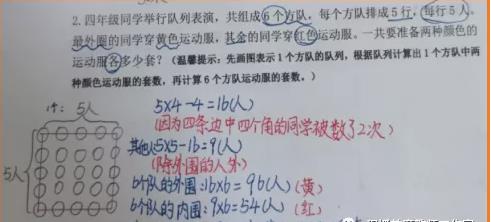 2.四年级同学举行队列表演，共组成6个方队，每个方队排成5行，每行5人。
最外圈的同学穿黄色运动服，其余的同学穿红色运动服。一共要准备两种颜色的
运动服各多少套？（温馨提示：先画图表示1个方队的队列，根据队列计算出1个方队中两
种颜色运动服的套数，再计算6个方队运动服的套数。）
5人
5×4-4=16(人)
(因为四条边中四个角的同学被数了2次)
5人
其他人5×5-16=9(人)
(除外围的人外)
6个队的外围:16×6=96(人)(黄)
6个队的内围:9×6=54(人)(红)